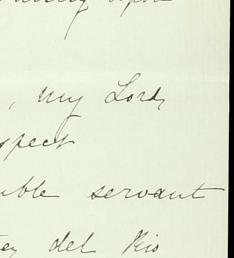 , my Lord,
spect
uble servant
tey del Rio